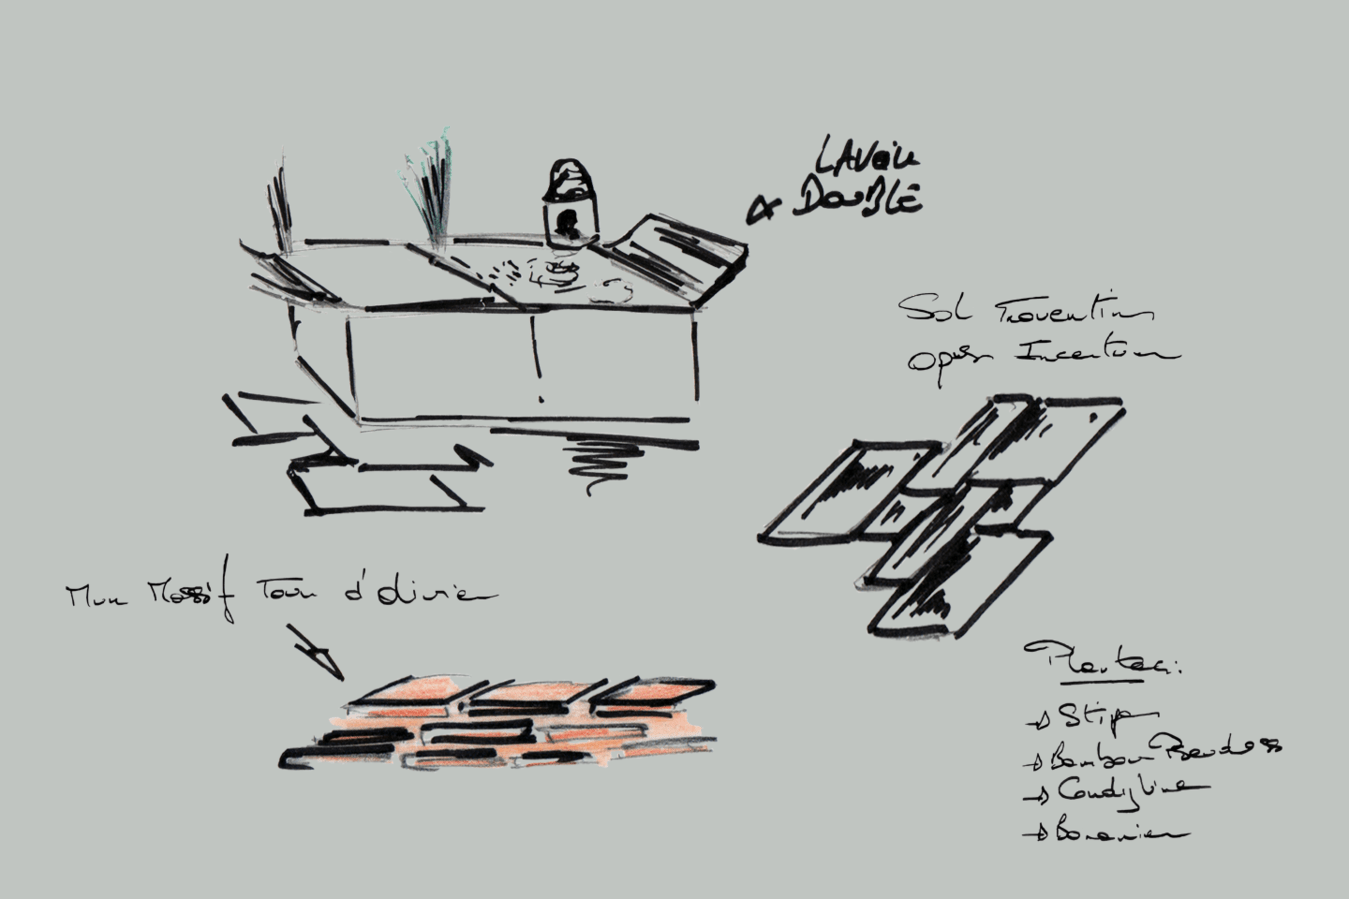 LAVoir
DouBLE
Sol Travertin
opus Incertum
Mur Massif Tour d'olivier
Plantes:
→ Stipa
→ Bambou
→ Cordyline
→ Bananier